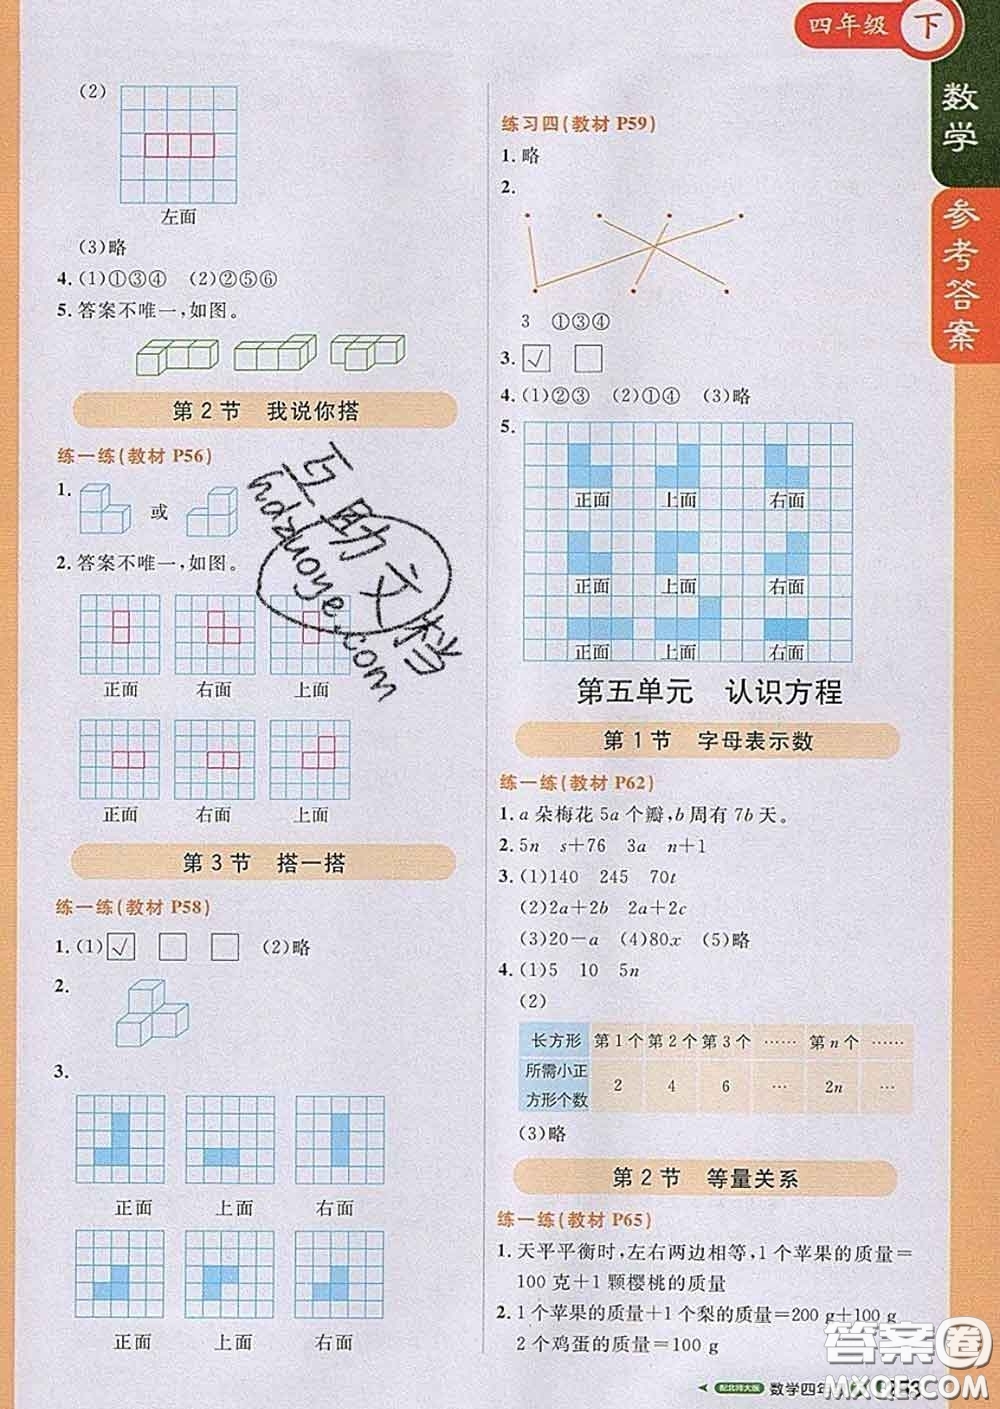 四年级 下
数学
参考答案
(2)
左面
(3)略
4. (1)①③④ (2)②⑤⑥
5. 答案不唯一,如图。
第2节 我说你搭
练一练(教材 P56)
1. 或
2. 答案不唯一,如图。
正面 右面 上面
正面 右面 上面
第3节 搭一搭
练一练(教材 P58)
1. (1)√ (2)略
2.
3.
正面 上面 右面
正面 上面 右面
练习四(教材 P59)
1. 略
2.
3 ①③④
3. √
4. (1)②③ (2)①④ (3)略
5.
正面 上面 右面
正面 上面 右面
正面 上面 右面
第五单元 认识方程
第1节 字母表示数
练一练(教材 P62)
1. a 朵梅花 5a 个瓣,b 周有 7b 天。
2. 5n s+76 3a n+1
3. (1)140 245 70t
(2)2a+2b 2a+2c
(3)20-a (4)80x (5)略
4. (1)5 10 5n
(2)
长方形 第1个 第2个 第3个 …… 第n个 ……
所需小正方形个数 2 4 6 … 2n …
(3)略
第2节 等量关系
练一练(教材 P65)
1. 天平平衡时,左右两边相等,1个苹果的质量=
100克+1颗樱桃的质量
2. 1个苹果的质量+1个梨的质量=200 g+100 g
2个鸡蛋的质量=100 g
配北师大版 数学四年
互助文档
hdzuoye.com
答案圈